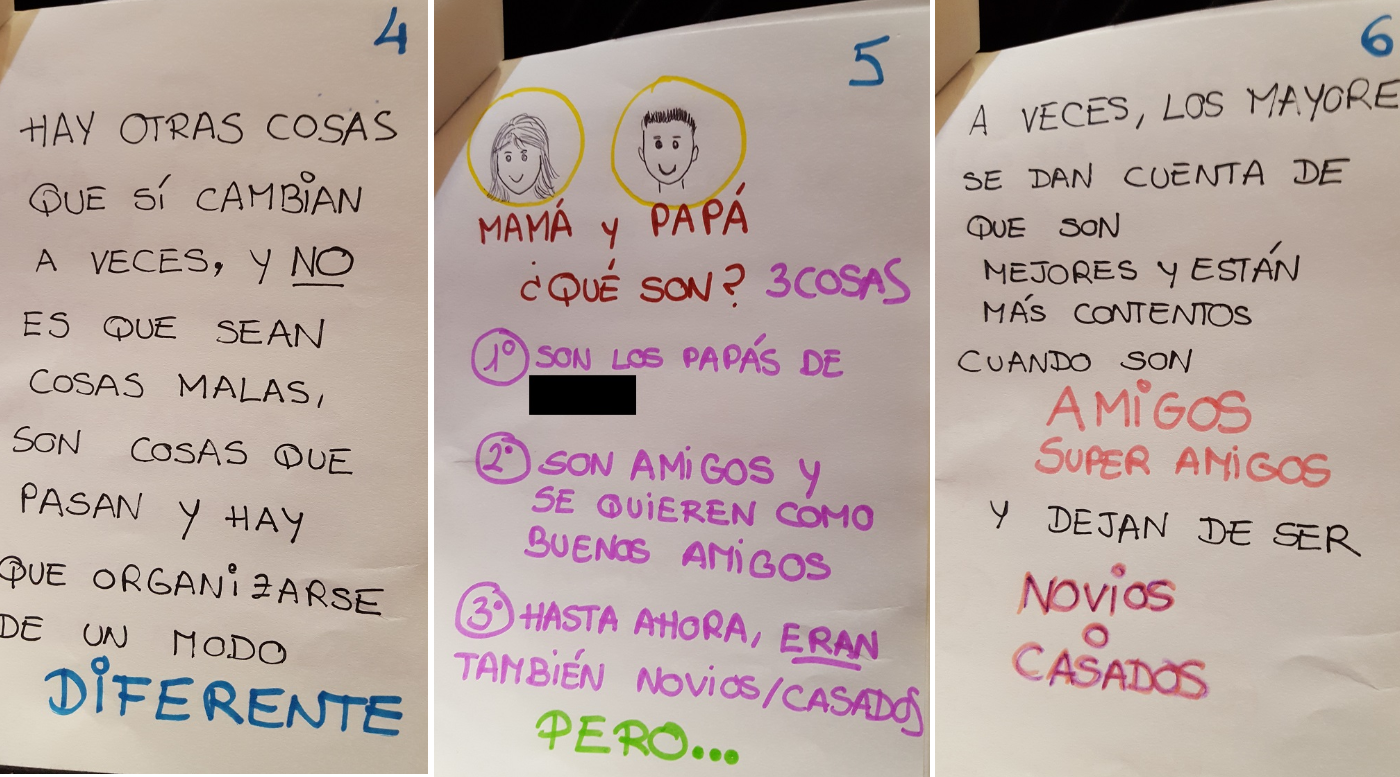 4
HAY OTRAS COSAS
QUE SÍ CAMBIAN
A VECES, Y NO
ES QUE SEAN
COSAS MALAS,
SON COSAS QUE
PASAN Y HAY
QUE ORGANIZARSE
DE UN MODO
DIFERENTE
5
MAMÁ y PAPÁ
¿QUÉ SON? 3 COSAS
1º SON LOS PAPÁS DE
2º SON AMIGOS Y
SE QUIEREN COMO
BUENOS AMIGOS
3º HASTA AHORA, ERAN
TAMBIÉN NOVIOS/CASADOS
PERO...
6
A VECES, LOS MAYORE
SE DAN CUENTA DE
QUE SON
MEJORES Y ESTÁN
MÁS CONTENTOS
CUANDO SON
AMIGOS
SUPER AMIGOS
Y DEJAN DE SER
NOVIOS
O
CASADOS